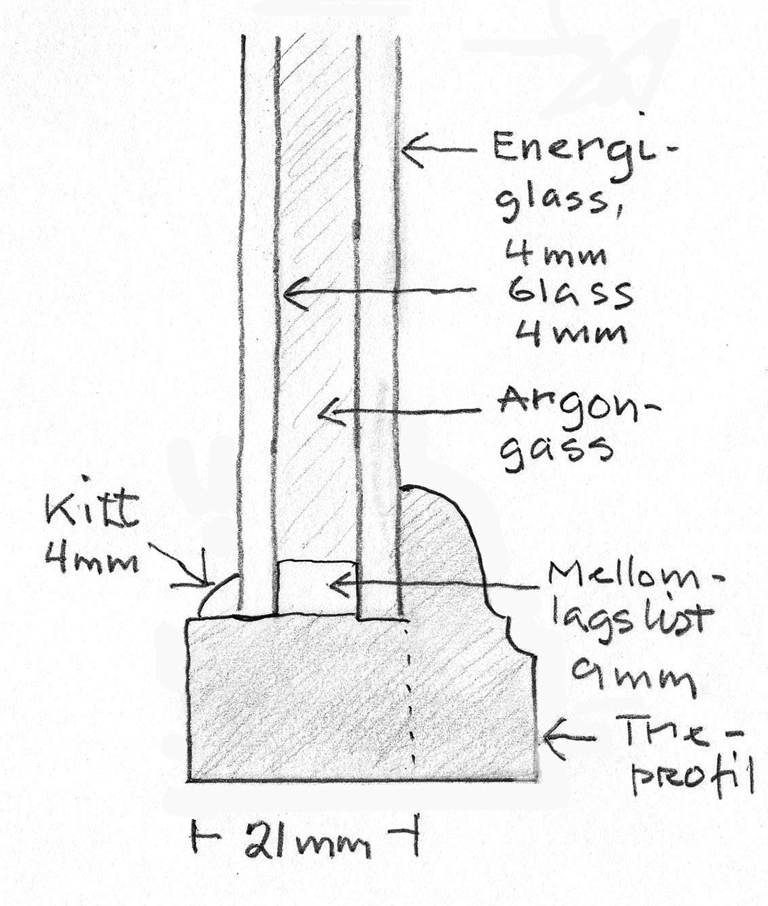 Energi-
glass,
4mm
Glass
4mm
Argon-
gass
Kitt
4mm
Mellom-
lagslist
9mm
Tre-
profil
21mm